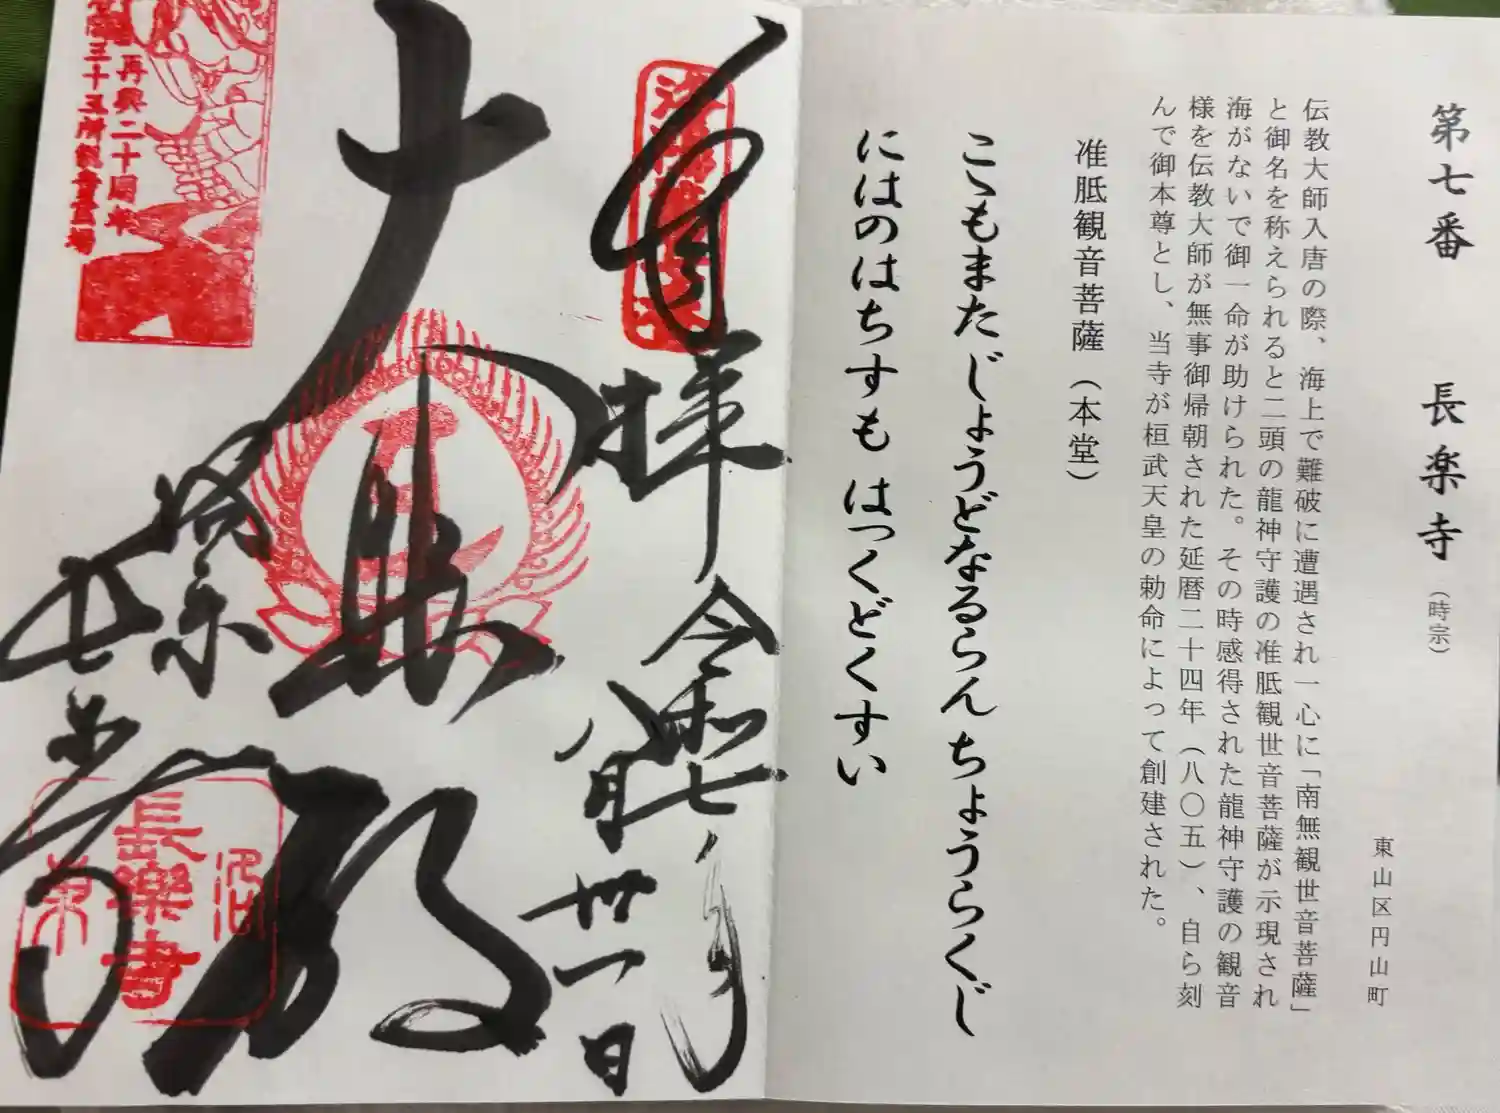 第七番 長楽寺（時宗）
東山区円山町
伝教大師入唐の際、海上で難破に遭遇され一心に「南無観世音菩薩」
と御名を称えられると二頭の龍神守護の准胝観世音菩薩が示現され
海がないで御一命が助けられた。その時感得された龍神守護の観音
様を伝教大師が無事御帰朝された延暦二十四年（八〇五）、自ら刻
んで御本尊とし、当寺が桓武天皇の勅命によって創建された。
准胝観音菩薩（本堂）
こゝもまた じょうどなるらん ちょうらくじ
にはのはちすも はっくどくすい
奉拝 令和七年
八月卅一日
大悲殿
長楽寺
再興二十周年
洛陽三十三所観音霊場
長樂寺